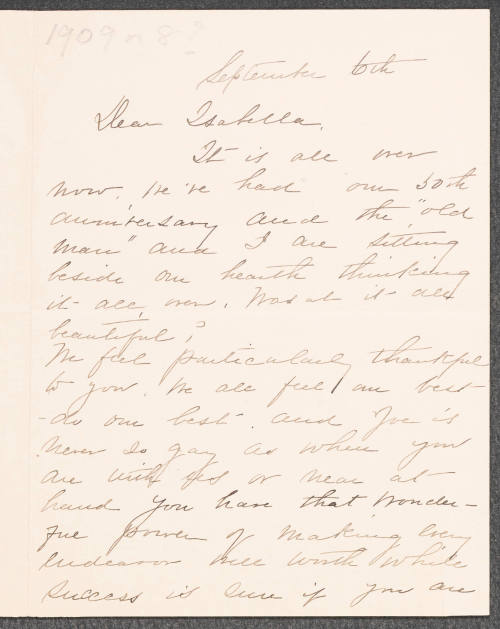 1909 or 8?
September 6th
Dear Isabella,
It is all over
now. We've had our 50th
anniversary and the "old
man" and I are sitting
beside our hearth thinking
it all over. Wasn't it all
beautiful?
We feel particularly thankful
to you. We all feel our best
-do our best and Joe is
never so gay as when you
are with us or near at
hand You have that wonder-
ful power of making every
endeavor well worth while
success is sure if you are